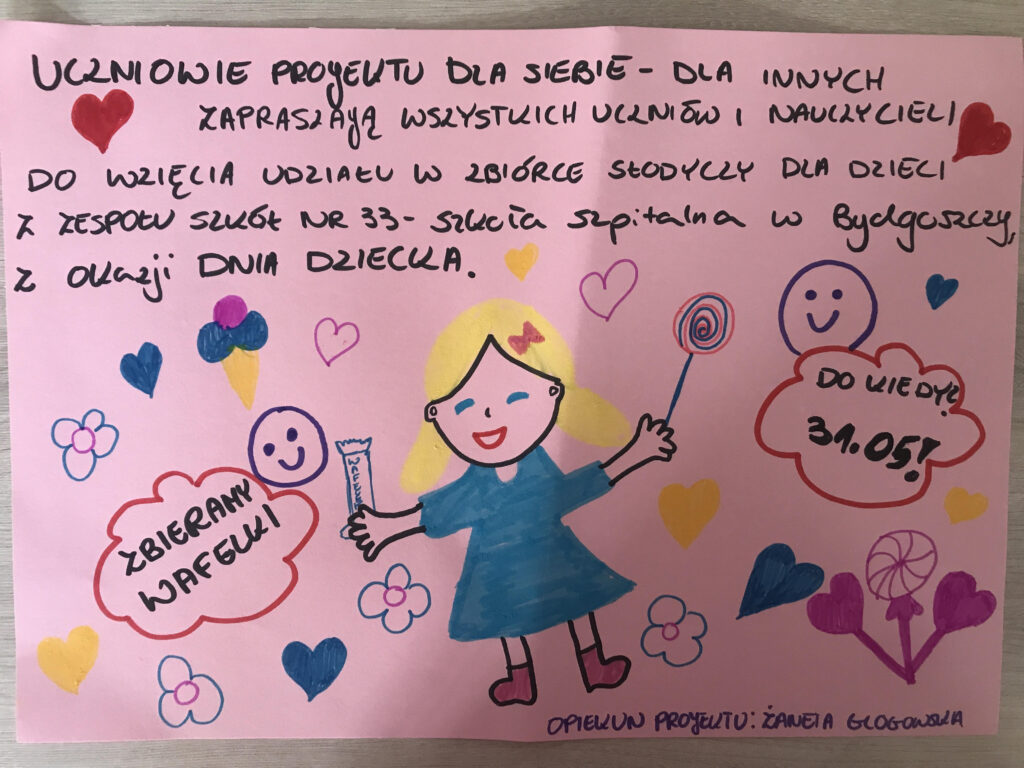 UCZNIOWIE PROJEKTU DLA SIEBIE - DLA INNYCH
ZAPRASZAJĄ WSZYSTKICH UCZNIÓW I NAUCZYCIELI
DO WZIĘCIA UDZIAŁU W ZBIÓRCE SŁODYCZY DLA DZIECI
Z ZESPOŁU SZKÓŁ NR 33 - szkoła szpitalna w Bydgoszczy,
z okazji DNIA DZIECKA.
DO KIEDY?
31.05!
ZBIERAMY
WAFELKI
OPIEKUN PROJEKTU: ŻANETA GŁOGOWSKA